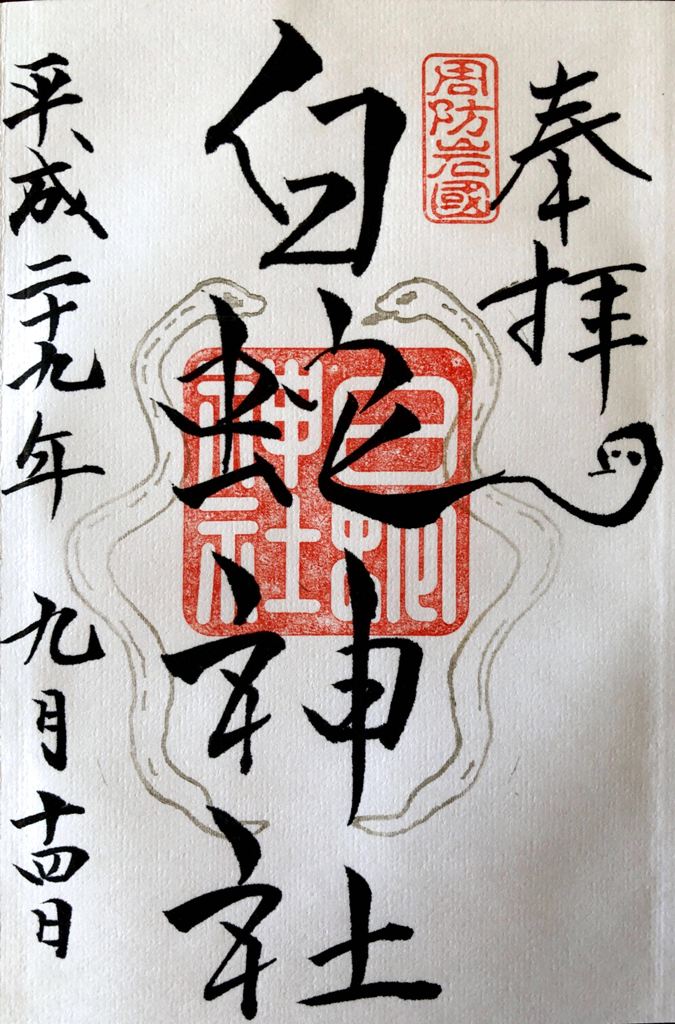 奉拝
周防岩國
白蛇神社
白蛇神社
平成二十九年 九月十四日